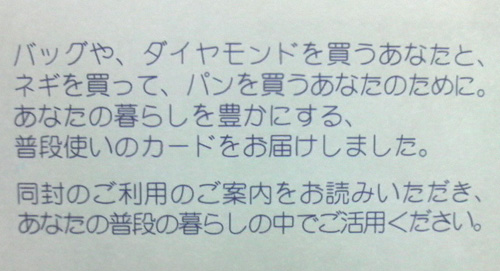 バッグや、ダイヤモンドを買うあなたと、
ネギを買って、パンを買うあなたのために。
あなたの暮らしを豊かにする、
普段使いのカードをお届けしました。
同封のご利用のご案内をお読みいただき、
あなたの普段の暮らしの中でご活用ください。